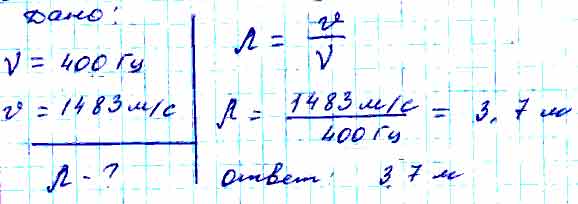 Дано:
ν = 400 Гц
v = 1483 м/с
λ - ?
λ = v/ν
λ = 1483 м/с / 400 Гц = 3,7 м
ответ: 3,7 м